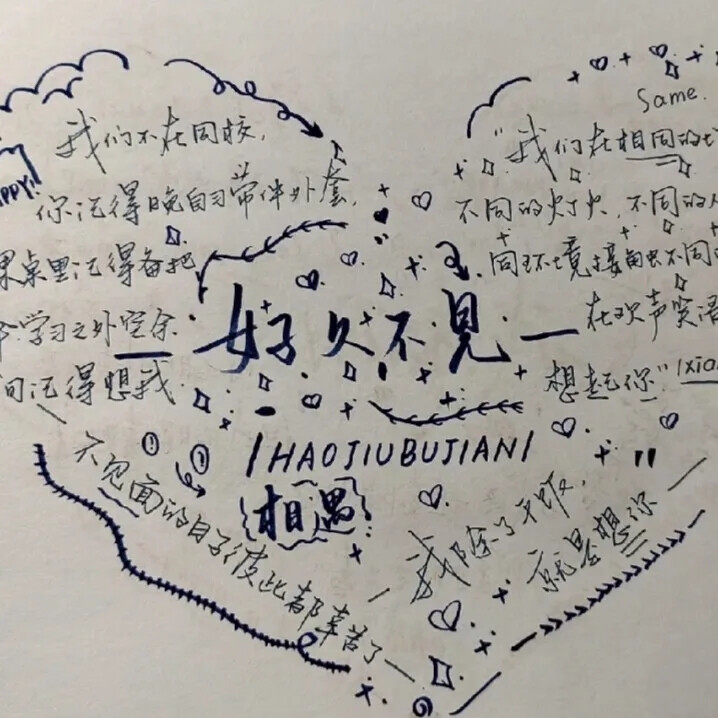 我们不在同校，
你记得晚自习带件外套，
桌里记得备把
学习之外空余
记得想我
PPY!
Same.
"我们在相同的
不同的灯火，不同的
同环境接触不同
在欢声笑语
想起你"
好久不见一
IHAOJIUBUJIANI
相遇
一不见面的日子彼此都辛苦了一
我除了干饭，
就是想你